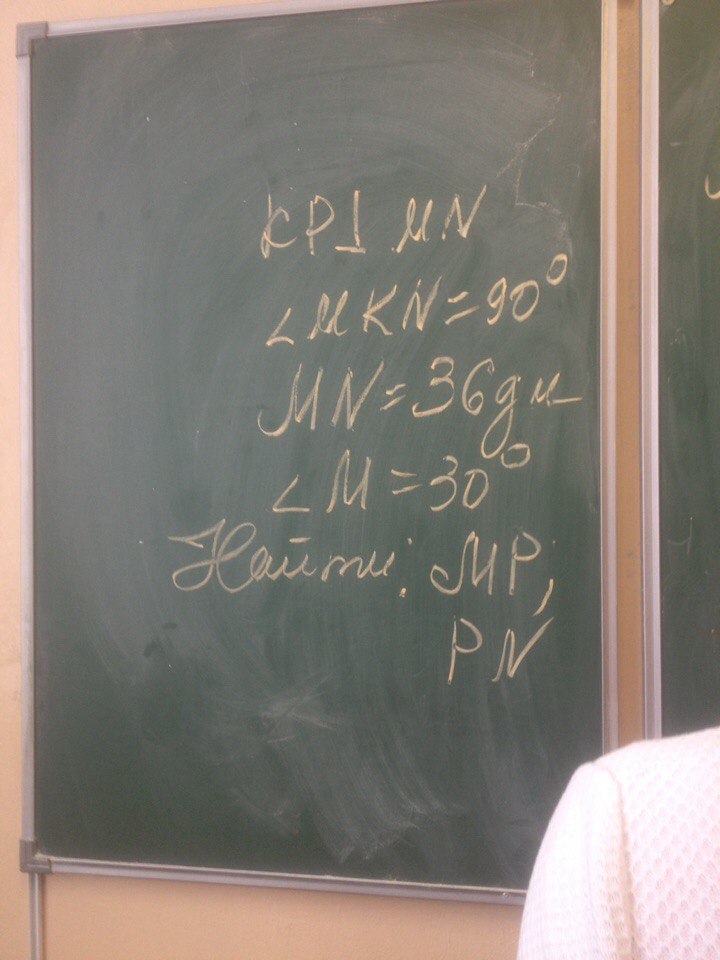 KP⊥MN
∠MKN=90°
MN=36дм
∠M=30°
Найти: MP;
PN